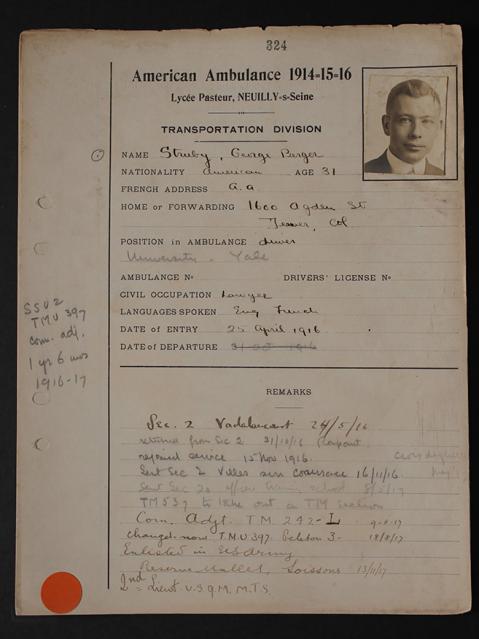 324
American Ambulance 1914-15-16
Lycée Pasteur, NEUILLY-s-Seine
TRANSPORTATION DIVISION
NAME Struby, George Barger
NATIONALITY American AGE 31
FRENCH ADDRESS a.a.
HOME or FORWARDING 1600 Ogden St
Denver, Col
POSITION in AMBULANCE driver
University - Yale
AMBULANCE No DRIVERS' LICENSE No
CIVIL OCCUPATION Lawyer
LANGUAGES SPOKEN Eng French
DATE of ENTRY 25 April 1916
DATE of DEPARTURE 31 Oct 1916
SSU 2
TMU 397
com. adj.
1 yr 6 mos
1916-17
REMARKS
Sec. 2 Vadelaincourt 24/5/16
returned from Sec 2 31/10/16
rejoined service 15 Nov 1916
Sent Sec 2 Villes sur Cousances 16/11/16
Sent Sec 2 school
TM 537 to take out a TM section
Com. Adjt. T.M. 242-L
Changed - now T.M.U 397 Peloton 3 - 18/8/17
Enlisted in U.S. Army
Reserve Mallet, Soissons 13/11/17
2nd Lieut U.S.Q.M. M.T.S.